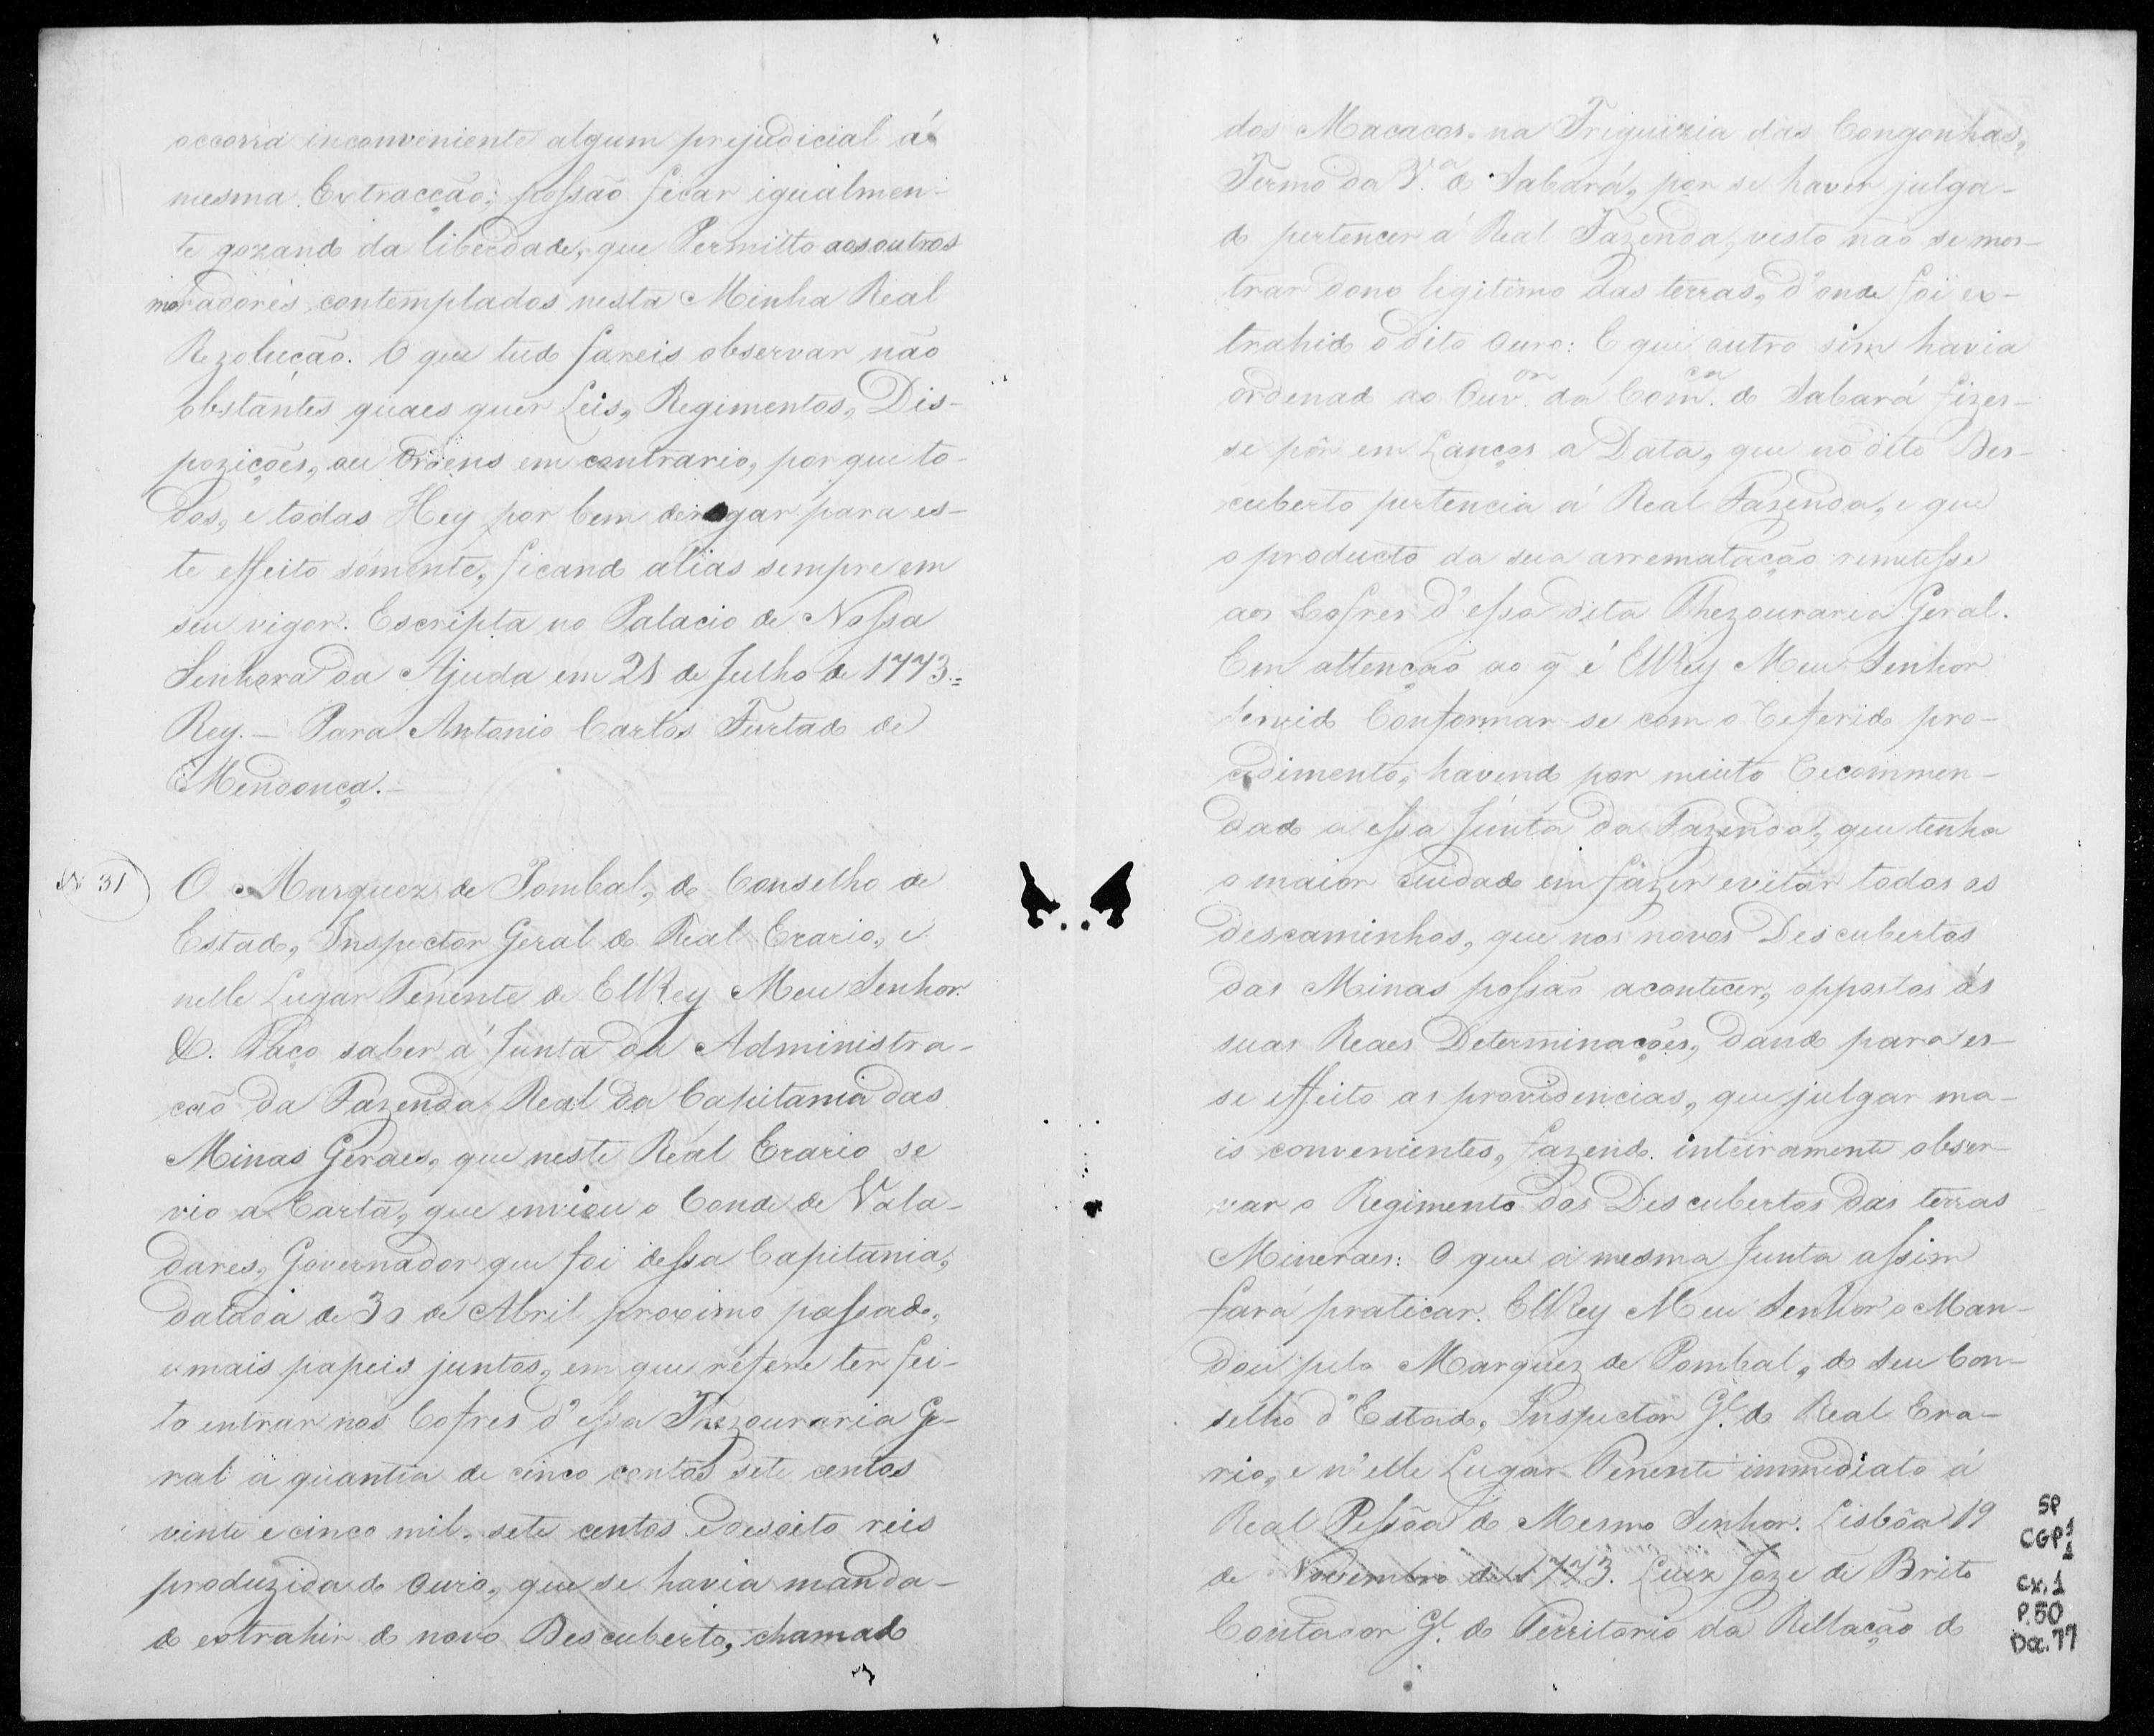 occorra inconveniente algum prejudicial á
mesma Extracção: possão ficar igualmen-
te gozando da liberdade, que Permitto aos outros
moradores contemplados nesta Minha Real
Rezolução. O que tudo fareis observar não
obstantes quaes quer Leis, Regimentos, Dis-
pozições, ou Ordens em contrario, porque to-
dos, e todas Hey por bem derogar para es-
te effeito sómente, ficando alias sempre em
seu vigor. Escripta no Palacio de Nossa
Senhora da Ajuda em 21 de Julho de 1773.=
Rey. — Para Antonio Carlos Furtado de
Mendonça. —
Nº 31
O Marquez de Pombal, do Conselho de
Estado, Inspector Geral do Real Erario, e
nelle Lugar Tenente de ElRey Meu Senhor
&. Faço saber á Junta da Administra-
ção da Fazenda Real da Capitania das
Minas Geraes, que neste Real Erario se
vio a Carta, que enviou o Conde de Vala-
dares, Governador que foi dessa Capitania,
datada de 30 de Abril proximo passado,
e mais papeis juntos, em que refere ter fei-
to entrar nos Cofres d'essa Thezouraria Ge-
ral a quantia de cinco contos sete centos
vinte e cinco mil, sete centos e desoito reis
produzida do Ouro, que se havia manda-
do extrahir do novo Descuberto, chamado
dos Macacos, na Friguizia das Congonhas,
Termo da V.ª do Sabará, por se haver julga-
do pertencer á Real Fazenda, visto não se mos-
trar dono legitimo das terras, d'onde foi ex-
trahido o dito Ouro: E que outro sim havia
ordenado ao Ouv.or da Com.ca do Sabará fizes-
se pôr em Lanços a Data, que no dito Des-
cuberto pertencia á Real Fazenda, e que
o producto da sua arrematação remetesse
aos Cofres d'essa dita Thezouraria Geral.
Em attenção ao q̃ é ElRey Meu Senhor
Servido Conformar-se com o referido pro-
cedimento, havendo por muito recommen-
dado a essa Junta da Fazenda, que tenha
o maior cuidado em fazer evitar todos os
descaminhos, que nos novos Descubertos
das Minas possão acontecer, oppostos ás
suas Reaes Determinações, dando para es-
se effeito as providencias, que julgar ma-
is convenientes, fazendo inteiramente obser-
var o Regimento dos Descubertos das terras
Mineraes: O que a mesma Junta assim
fará praticar. ElRey Meu Senhor o Man-
dou pelo Marquez de Pombal, do Seu Con-
selho d'Estado, Inspector G.l do Real Era-
rio, e n'elle Lugar Tenente immediato á
Real Pessôa do Mesmo Senhor. Lisbôa 19
de Novembro de 1773. Luiz Joze de Brito
Contador G.l do Territorio da Rellação do
SP
CGP1
1
cx. 1
P. 50
Doc. 77